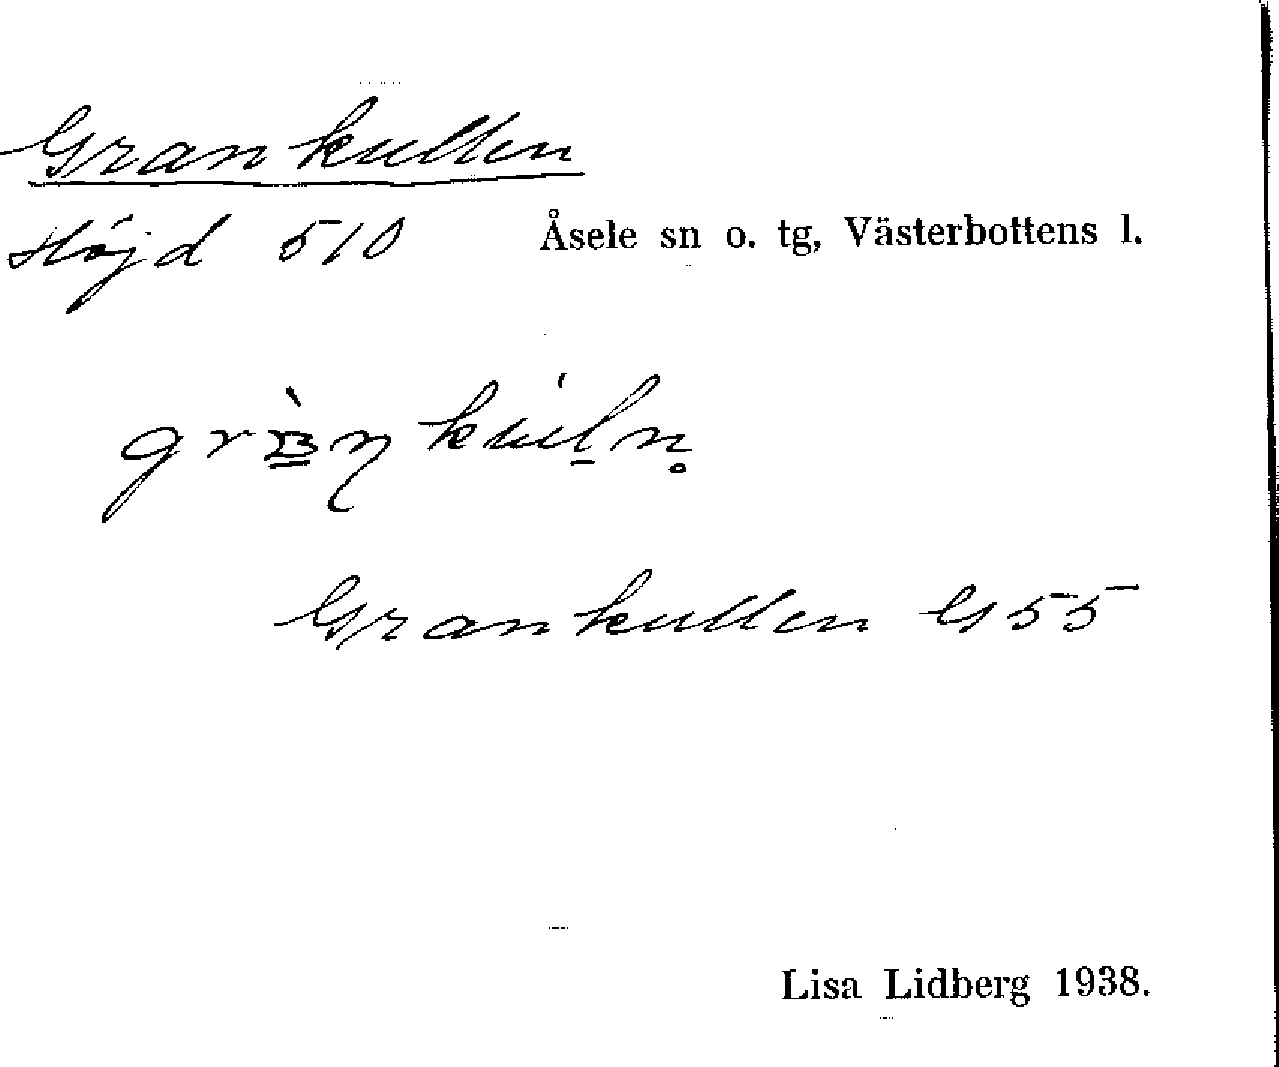 Grankullen
Höjd 510 Åsele sn o. tg, Västerbottens l.
Grankullen G55
Lisa Lidberg 1938.